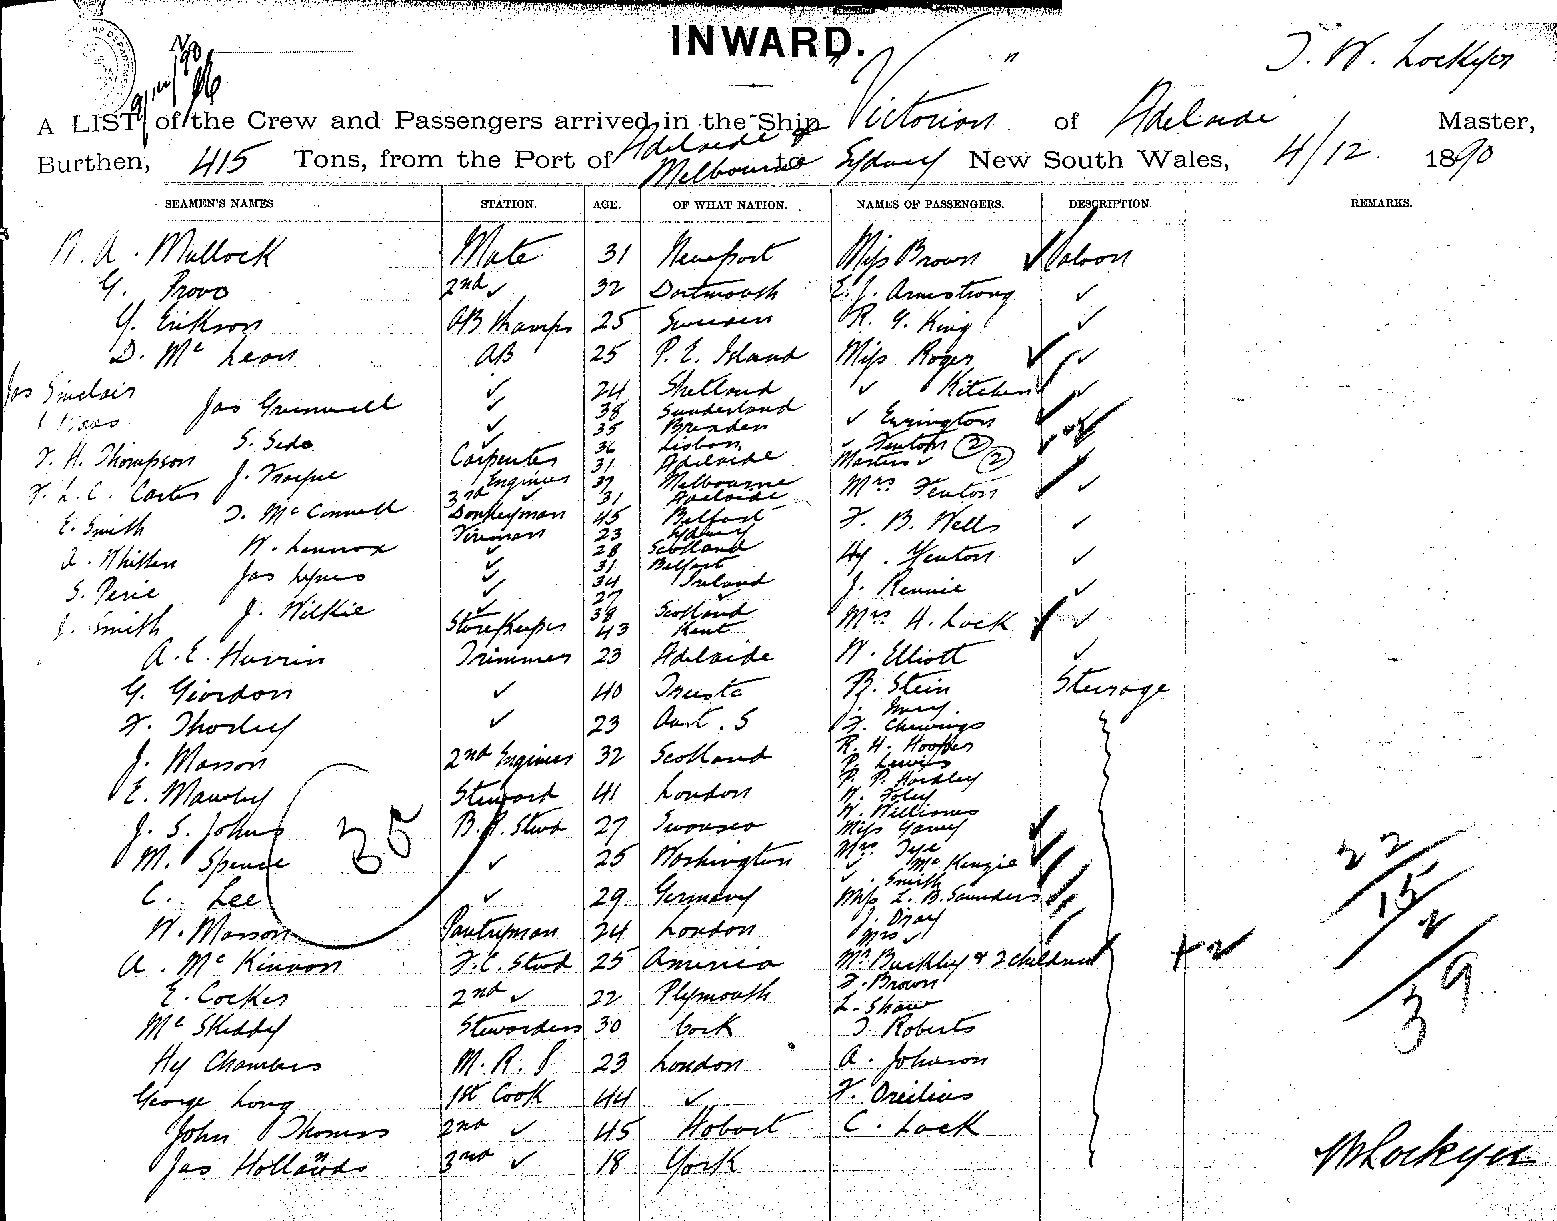 INWARD.
T. W. Lockyer
A LIST of the Crew and Passengers arrived in the Ship "Victorian" of Adelaide Master,
Burthen, 415 Tons, from the Port of Adelaide & Melbourne to Sydney New South Wales, 4/12 1890
SEAMEN'S NAMES STATION. AGE. OF WHAT NATION. NAMES OF PASSENGERS. DESCRIPTION. REMARKS.
A. Mullock Mate 31 Newport Miss Brown Saloon
G. Provo 2nd ✓ 32 Dartmouth E. J. Armstrong ✓
Y. Erikson AB 25 Sweden R. G. King ✓
D. Mc Lean AB 25 P. E. Island Miss Roger ✓
Jas Sinclair ✓ 24 Shetland ✓ Kitchen ✓
Jas Greenwell ✓ 38 Sunderland ✓ Errington
✓ 35 ✓ Fenton (2)
S. Sedo ✓ 36 Lisbon Masters ✓ (2)
F. H. Thompson Carpenter 31 Adelaide
J. Engineer 37 Melbourne Mrs Fenton ✓
F. L. C. Carter 3rd ✓ 31 Adelaide
J. McConnell Donkeyman 45 Belfast F. B. Wells ✓
E. Smith Fireman 23 Sydney
W. Lennox ✓ 28 Scotland Hy. Fenton ✓
A. Whitten ✓ 31 Belfast
Jas Lynes ✓ 34 Ireland J. Rennie ✓
S. Perie ✓ 27 ✓
J. Wilkie ✓ 38 Scotland Mrs H. Lock ✓
J. Smith Storekeeper 43 Kent
A. E. Harrin Trimmer 23 Adelaide W. Elliott ✓
G. Giordon ✓ 40 Trieste B. Stein Steerage
F. Thorley ✓ 23 Aust. S F. Chewings
J. Masson 2nd Engineer 32 Scotland R. H. Hooper
P. Lewis
P. P. Hockley
E. Mawby Steward 41 London W. Foley
W. Williams
J. S. Johns B. R. Stwd 27 Swansea Miss Garvey
M. Spence ✓ 25 Washington Mrs Tye
✓ McKenzie
C. Lee ✓ 29 Germany ✓ Smith
Miss L. B. Saunders
W. Masson Pantryman 24 London J. Dray
Mrs ✓
A. McKinnon F. C. Stwd 25 America Mrs Buckley & 2 children + 2
E. Cocker 2nd ✓ 22 Plymouth F. Brown
L. Shaw
Mc Skiddy Stewardess 30 Cork J. Roberts
Hy Chambers M. R. S 23 London A. Johnson
George Long 1st Cook 44 ✓
John Thomas 2nd ✓ 45 Hobart C. Lock
Jas Hollands 3rd ✓ 18 York
35
22
15
2
39
W Lockyer